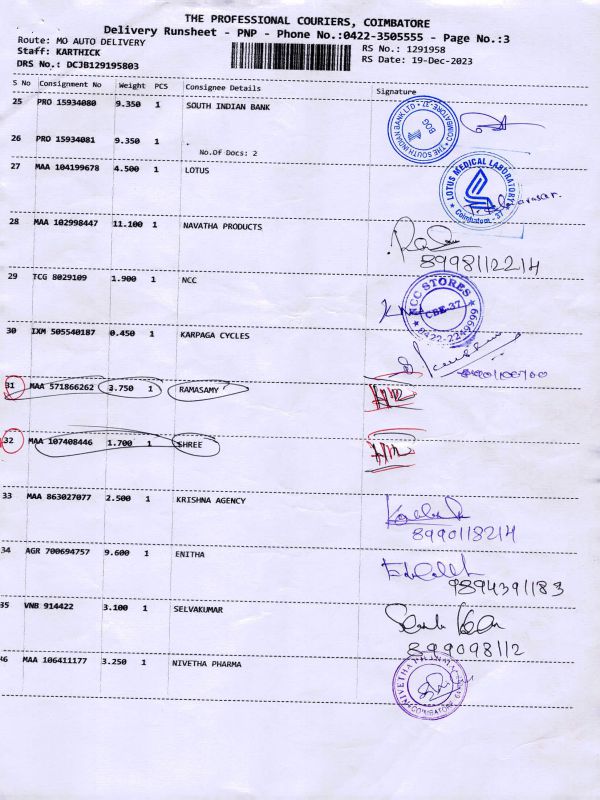 THE PROFESSIONAL COURIERS, COIMBATORE
Delivery Runsheet - PNP - Phone No.:0422-3505555 - Page No.:3
Route: MO AUTO DELIVERY
RS No.: 1291958
Staff: KARTHICK
RS Date: 19-Dec-2023
DRS No.: DCJB129195803
S No Consignment No Weight PCS Consignee Details Signature
25 PRO 15934080 9.350 1 SOUTH INDIAN BANK
26 PRO 15934081 9.350 1 .
No.Of Docs: 2
27 MAA 104199678 4.500 1 LOTUS
LOTUS MEDICAL LABORATORY
Coimbatore - 37
28 MAA 102998447 11.100 1 NAVATHA PRODUCTS
8998112214
29 TCG 8029109 1.900 1 NCC
NCC STORES
CBE-37
0422-2249999
30 IXM 505540187 0.450 1 KARPAGA CYCLES
31 MAA 571866262 3.750 1 RAMASAMY
32 MAA 107408446 1.700 1 SHREE
33 MAA 863027077 2.500 1 KRISHNA AGENCY
8990118214
34 AGR 700694757 9.600 1 ENITHA
9894391183
35 VNB 914422 3.100 1 SELVAKUMAR
899098112
46 MAA 106411177 3.250 1 NIVETHA PHARMA